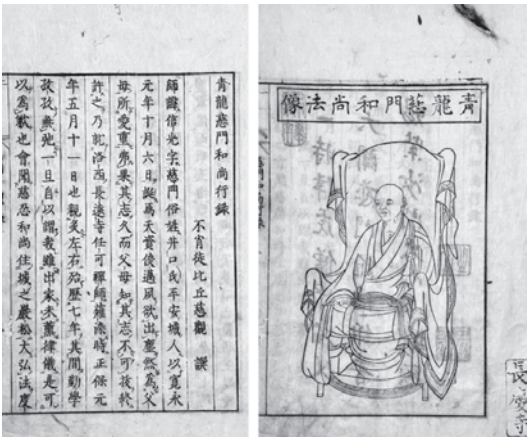 青龍慈門和尚法像
長慶寺
青龍慈門和尚行録
不肖徒比丘慈觀 譔
師諱信光字慈門俗姓井口氏平安城人以寛永
元年十月六日誕爲天資俊邁夙欲出塵然爲父
母所愛重弗果其志久而父母知其志不可拔終
許之乃詑洛西長遠寺任可禪師薙染時正保元
年五月十一日也親炙左右殆歷七年其間勤學
孜孜無弛一旦自以謂我雖出家未薰律儀是可
以爲歉也會聞慈忍和尚住城之嚴松大弘法度